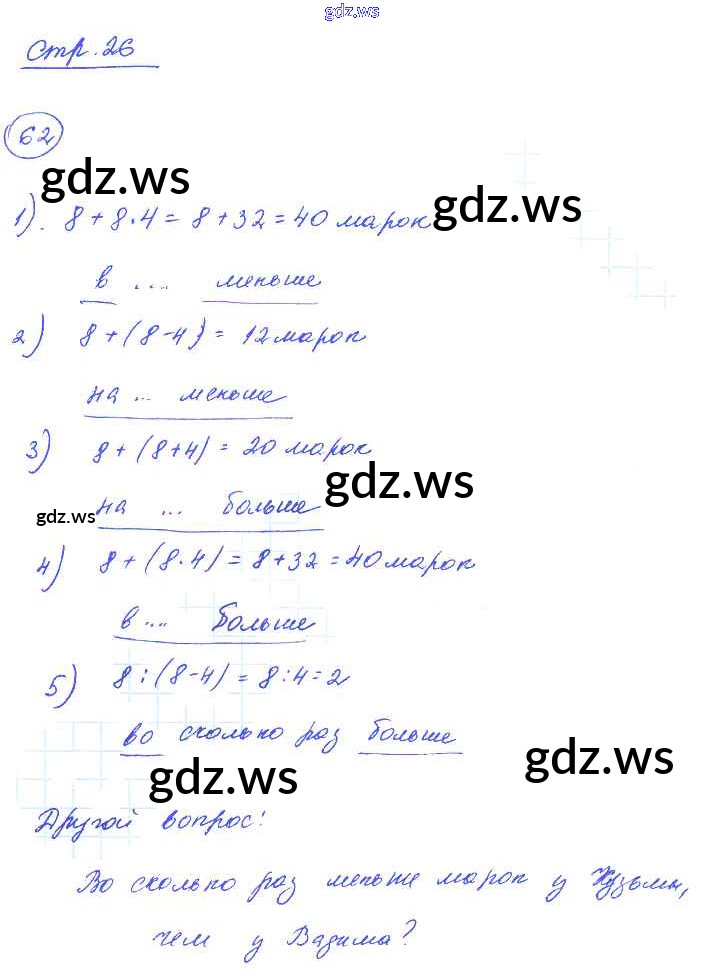 gdz.ws
Стр. 26
62
gdz.ws
1). 8 + 8·4 = 8 + 32 = 40 марок
gdz.ws
в ... меньше
2) 8 + (8-4) = 12 марок
на ... меньше
3) 8 + (8+4) = 20 марок
gdz.ws
на ... больше
gdz.ws
4) 8 + (8·4) = 8 + 32 = 40 марок
в ... больше
5) 8 : (8-4) = 8 : 4 = 2
во сколько раз больше
gdz.ws
gdz.ws
Другой вопрос:
Во сколько раз меньше марок у Кузьмы,
чем у Вадима?